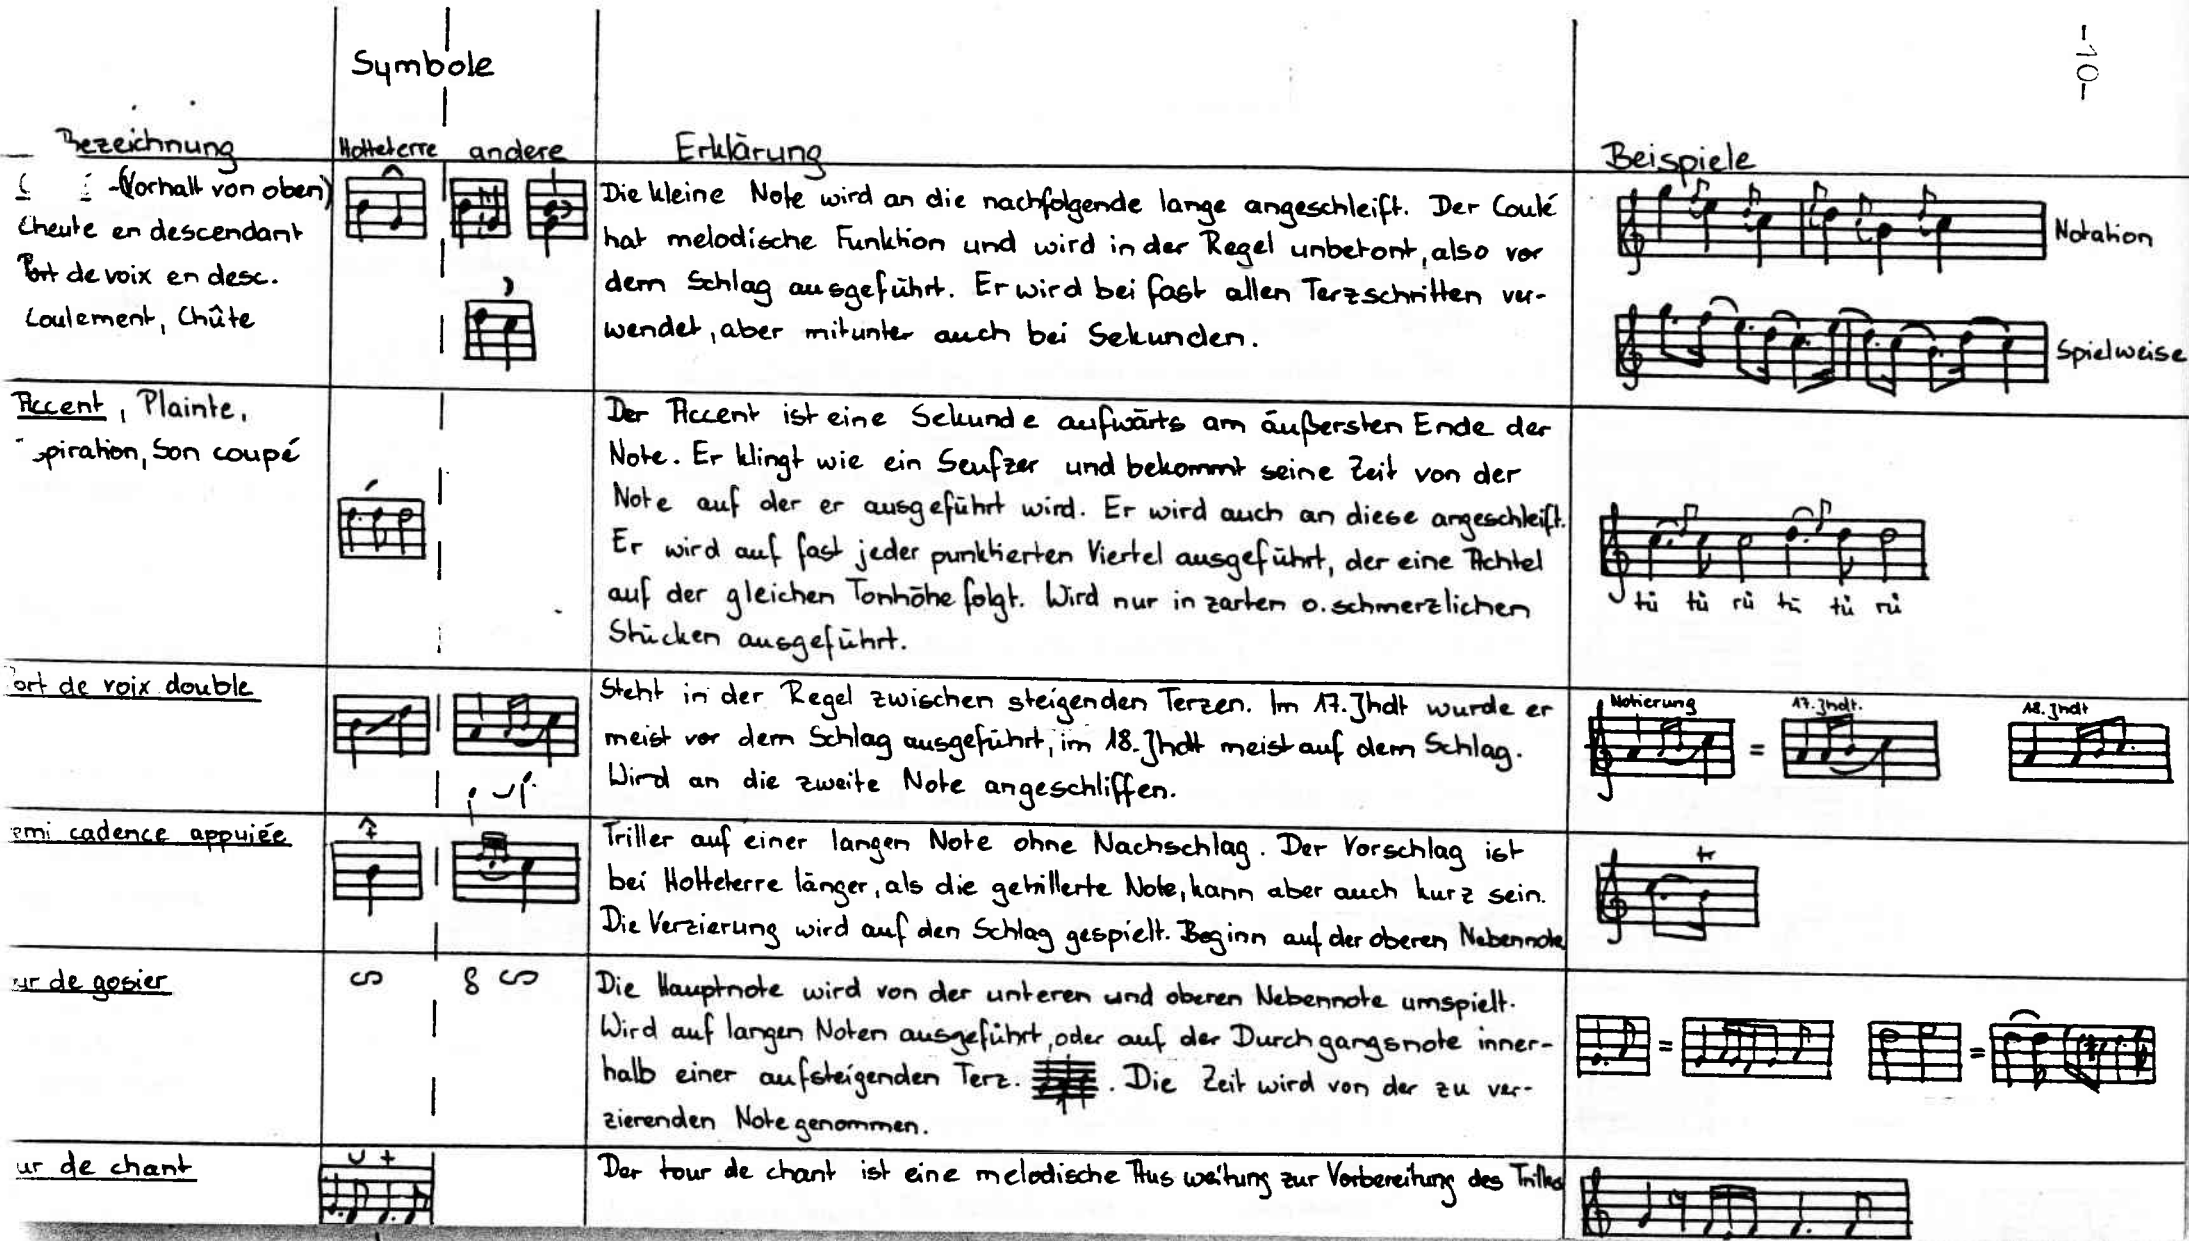 -10-
Symbole
Bezeichnung
Hotteterre
andere
Erklärung
Beispiele
(Vorhalt von oben)
Cheute en descendant
Port de voix en desc.
Coulement, Chûte
Die kleine Note wird an die nachfolgende lange angeschleift. Der Coulé
hat melodische Funktion und wird in der Regel unbetont, also vor
dem Schlag ausgeführt. Er wird bei fast allen Terzschritten ver-
wendet, aber mitunter auch bei Sekunden.
Notation
Spielweise
Accent, Plainte,
piration, Son coupé
Der Accent ist eine Sekunde aufwärts am äußersten Ende der
Note. Er klingt wie ein Seufzer und bekommt seine Zeit von der
Note auf der er ausgeführt wird. Er wird auch an diese angeschleift.
Er wird auf fast jeder punktierten Viertel ausgeführt, der eine Achtel
auf der gleichen Tonhöhe folgt. Wird nur in zarten o. schmerzlichen
Stücken ausgeführt.
tü tü rü tü tü rü
ort de voix double
Steht in der Regel zwischen steigenden Terzen. Im 17. Jhdt wurde er
meist vor dem Schlag ausgeführt, im 18. Jhdt meist auf dem Schlag.
Wird an die zweite Note angeschliffen.
Notierung
17. Jhdt.
18. Jhdt
=
emi cadence appuiée
Triller auf einer langen Note ohne Nachschlag. Der Vorschlag ist
bei Hotteterre länger, als die getrillerte Note, kann aber auch kurz sein.
Die Verzierung wird auf den Schlag gespielt. Beginn auf der oberen Nebennote
tr
ur de gosier
Die Hauptnote wird von der unteren und oberen Nebennote umspielt.
Wird auf langen Noten ausgeführt, oder auf der Durchgangsnote inner-
halb einer aufsteigenden Terz. . Die Zeit wird von der zu ver-
zierenden Note genommen.
= =
ur de chant
Der tour de chant ist eine melodische Ausweitung zur Vorbereitung des Trillers